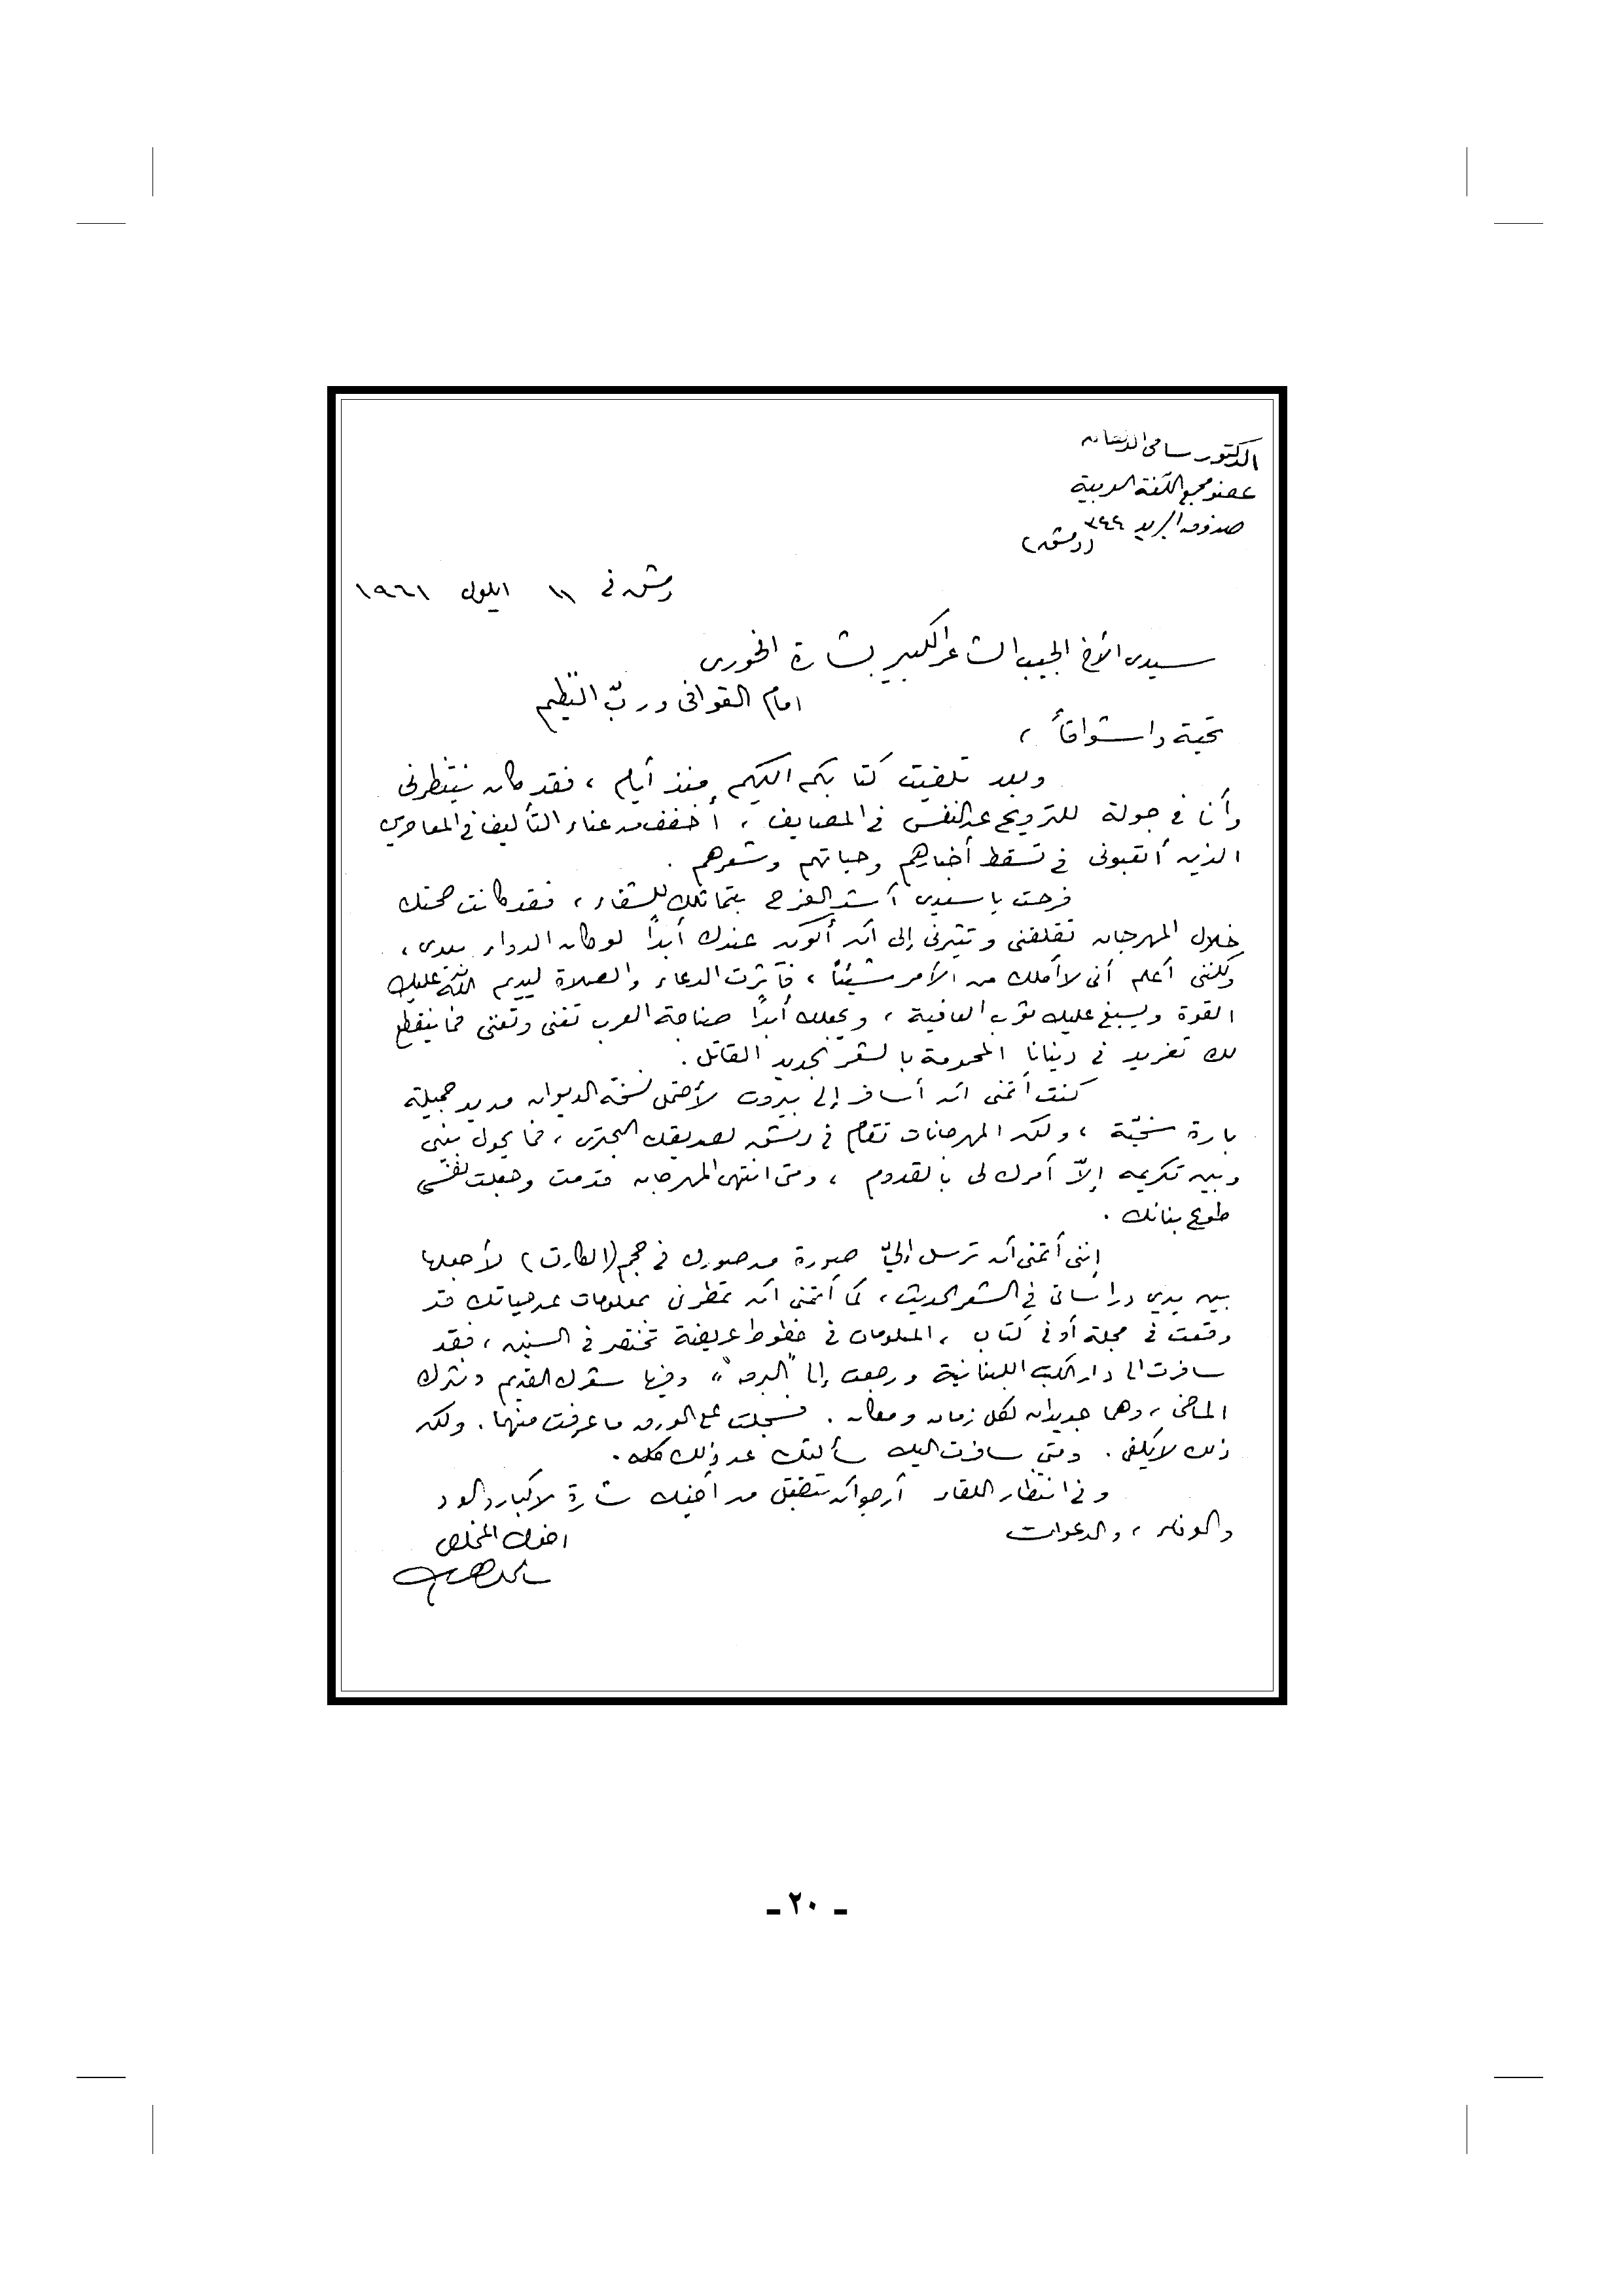 الدكتور سامي الدهان
عضو مجمع اللغة العربية
صندوق البريد ٣٤٤
(دمشق)
دمشق في ١١ ايلول ١٩٦١
سيدي الأخ الحبيب الشاعر الكبير بشارة الخوري
امام القوافي وربّ النّظيم
تحية واشواقاً ،
وبعد تلقيت كتابكم الكريم منذ أيام ، فقد كان ينتظرني
وأنا في جولة للترويح عن النفس في المصايف ، أخفف من عناء التأليف في المعاصرين
الذين أتعبوني في تسقط أخبارهم وحياتهم وشعرهم .
فرحت يا سيدي أشد الفرح بتماثلك للشفاء ، فقد كانت صحتك
خلال المهرجان تقلقني وتثيرني إلى أن أكون عندك أبداً لو كان الدواء بيدي ،
ولكنني أعلم أني لا أملك من الأمر شيئاً ، فآثرت الدعاء والصلاة ليديم الله عليك
القوة ويسبغ عليك ثوب العافية ، ويجعلك أبداً صناجة العرب تغني وتغني فما ينقطع
لك تغريد في دنيانا المحمومة بالشعر الجديد القاتل .
كنت أتمنى أن أسافر إلى بيروت لأحتمل نسخة الديوان من يد جميلة
بارة سخيّة ، ولكن المهرجانات تقام في دمشق لصديقك البحتري ، فما يحول بيني
وبين تكريمه إلاّ أمرك لي بالقدوم ، ومتى انتهى المهرجان قدمت وجعلت نفسي
طوع بنانك .
إنني أتمنى أن ترسل إليّ صورة من صورك في حجم (الكارت) لأجعلها
بين يدي دراساتي في الشعر الحديث ، كما أتمنى أن تمطرني بمعلومات عن حياتك قد
وقعت في مجلة أو في كتاب ، المعلومات في خطوط عريضة تختصر في السنين ، فقد
سافرت الى دار الكتب اللبنانية ورجعت إلى "البرق" وفيها شعرك القديم ونثرك
الماضي ، وهما جديدان لكل زمان ومكان . فسجلت على الورق ما عرفت منهما . ولكن
ذلك لا يكفي . ومتى سافرت اليك سألتك عن ذلك كله .
وفي انتظار اللقاء أرجو أن تتقبل من أخيك شارة الاكبار والود
والوفاء ، والدعوات
اخوك المخلص
- ٢٠ -